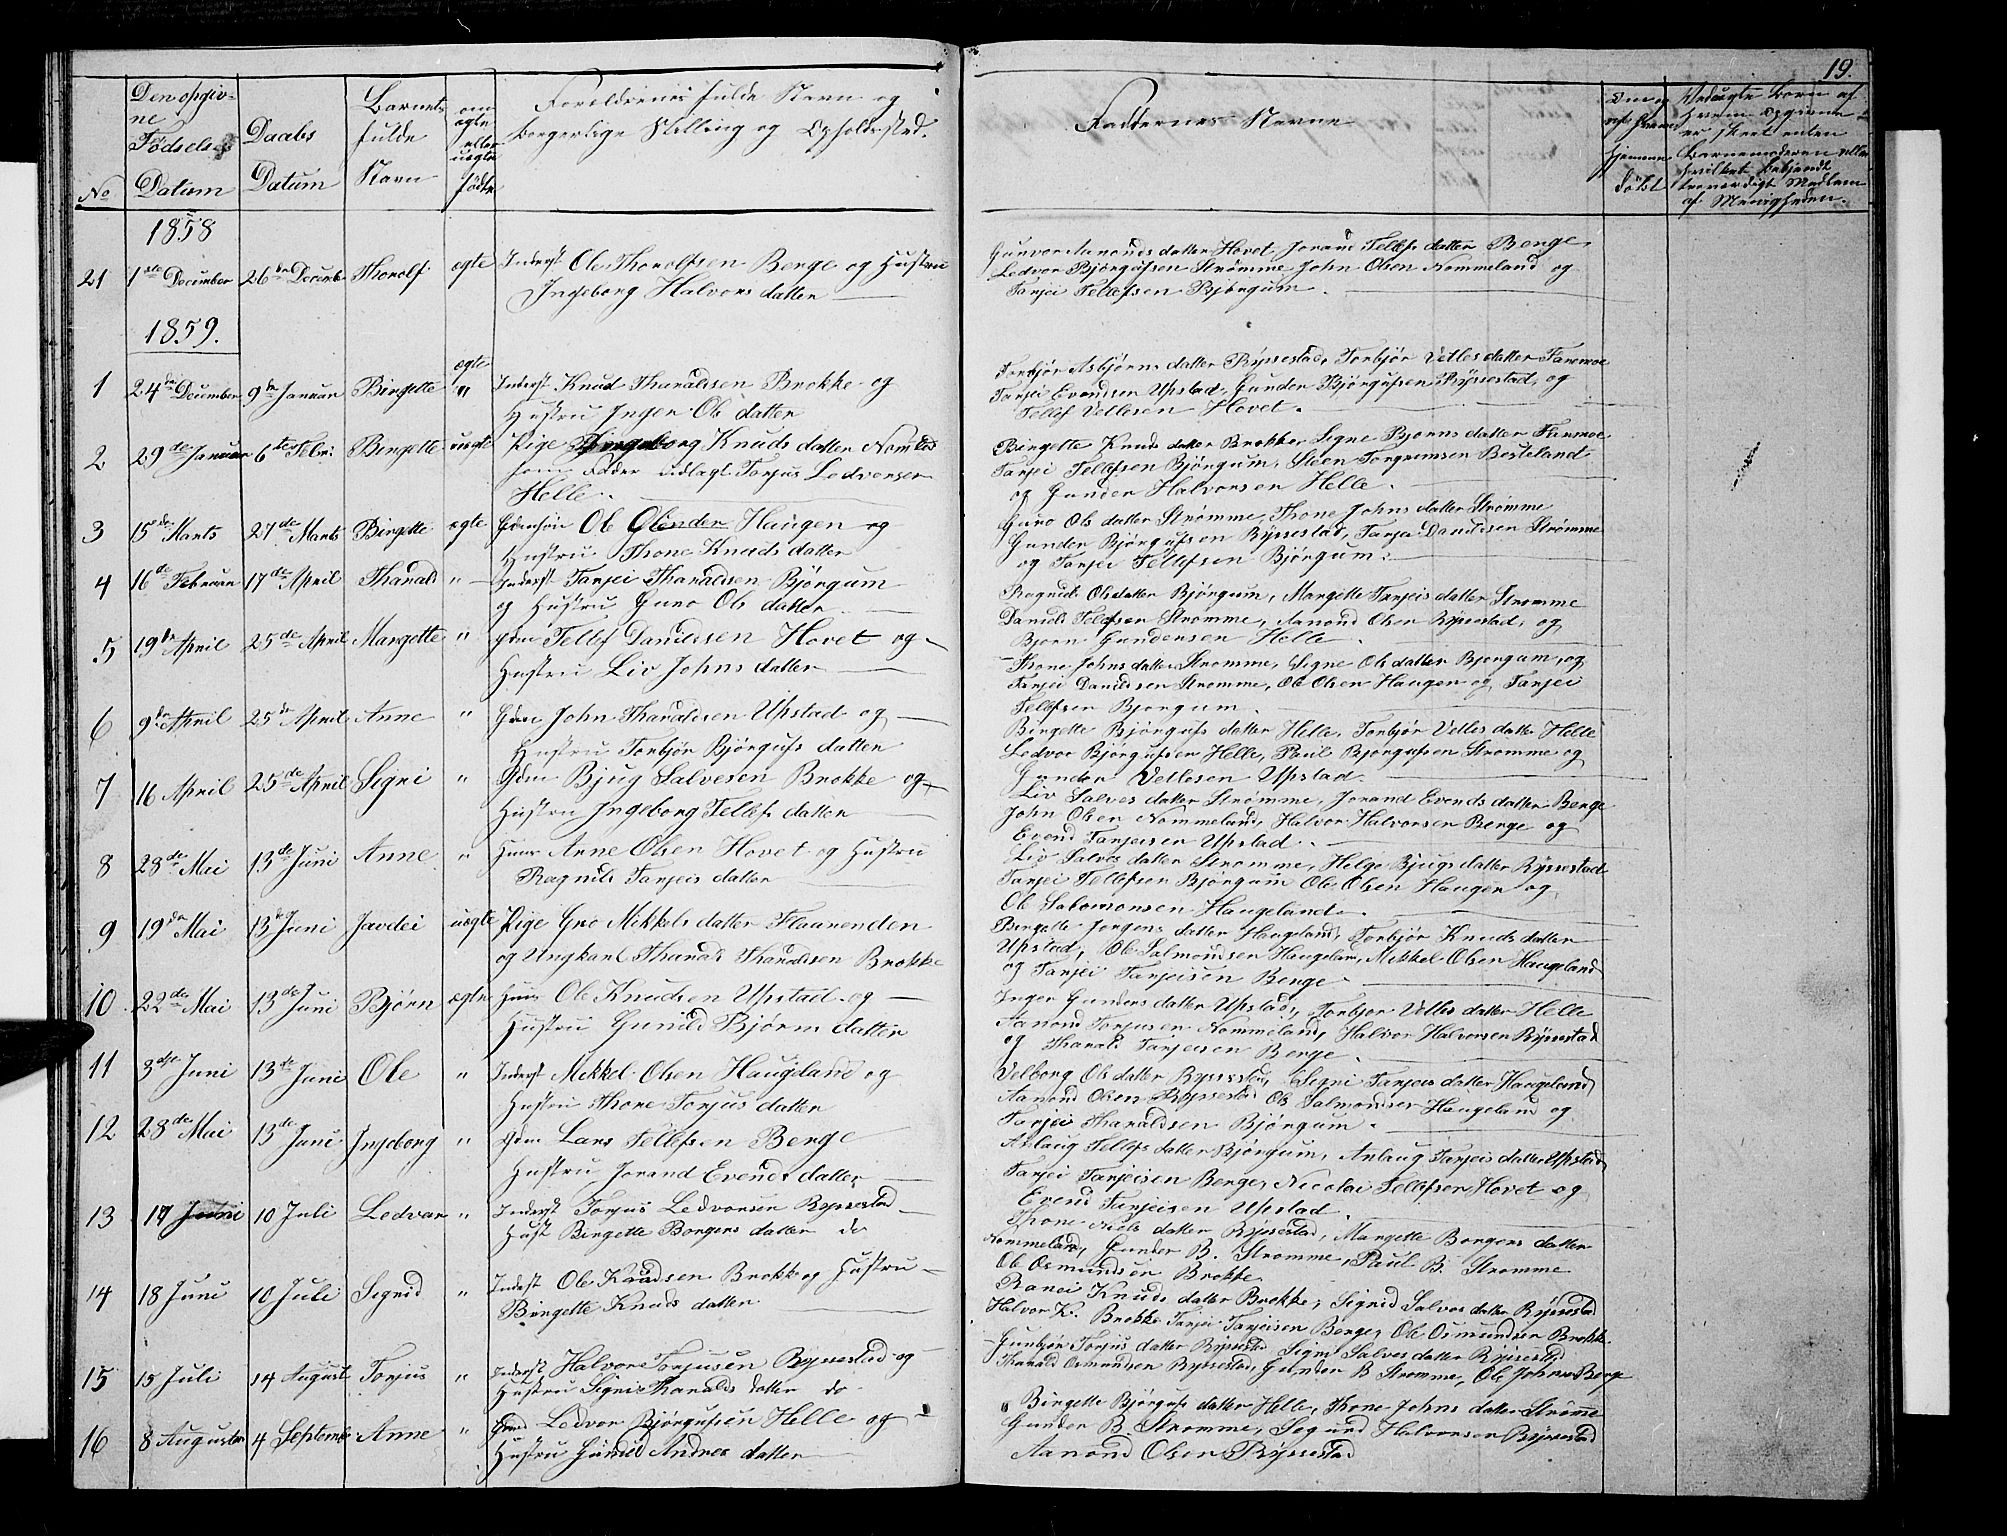 19.
No
Den opgivne Fødsels Datum
Daabs Datum
Barnets fulde Navn
om ægte eller uægte født
Forældrenes fulde Navn og borgerlige Stilling og Opholdssted.
Faddernes Navne
døbt
Ved uægte Børn af hvem Opgivne er skeet enten Barnemoderen eller hvilket bekjendt troværdigt Medlem af Menigheden.
1858
21 1ste December 26de Decemb Thorolf ægte Inderst Ole Thorolfsen Berge og Hustru
Ingeborg Halvors datter
Gunvor Aanonds datter Hovet Jorand Tellefs datter Berge,
Ledvor Bjørgufsen Strømme John Olsen Nommeland og
Tarjei Tellefsen Bjørgum.
1859.
1 24de December 9de Januar Birgette ægte " Inderst Knud Tharaldsen Brokke og
Hustru Inger Ols datter
Torbjør Asbjørns datter Rysestad, Torbjør Vetles datter Fanemoe
Tarjei Evendsen Upstad, Gunder Bjørgufsen Rysestad, og
Tellef Vetlesen Hovet.
2 29de Januar 6te Febr: Birgette uægte Pige Ingeborg Knuds datter
som Fader udlagt Torjus Ledvorsen
Helle.
Birgette Knuds datter Brokke, Signe Bjørns datter
Tarjei Tellefsen Bjørgum, Steen Torgrimsen Besteland
og Gunder Halvorsen Helle.
3 15de Marts 27de Marts Birgitte ægte Ole Haugen og
Hustru Thone Knuds datter
Guro Ols datter Strømme, Thone Johns datter Strømme
Gunder Bjørgufsen Rysestad, Tarjei Danielsen Strømme
og Tarjei Tellefsen Bjørgum.
4 16de Februar 17de April Tharald " Inderst Tarjei Tharaldsen Bjørgum
og Hustru Guro Ols datter
Ragnild Olsdatter Bjørgum, Margette Tarjeis datter Strømme
Daniel Tellefsen Strømme, Aanond Olsen Rysestad, og
Bjørn Gundersen Helle.
5 19de April 25de April Margette " Gdm Tellef Danielsen Hovet og
Hustru Liv Johns datter
Thone Johns datter Strømme, Signe Ols datter Bjørgum, og
Tarjei Danielsen Strømme, Ole Olsen Haugen og Tarjei
Tellefsen Bjørgum.
6 9de April 25de April Anne " Gdm John Tharaldsen Upstad og
Hustru Torbjør Bjørgufs datter
Birgette Bjørgufs datter Helle, Torbjør Vetles datter Helle
Ledvor Bjørgufsen Helle, Paul Bjørgufsen Strømme og
Gunder Vetlesen Upstad.
7 16 April 25de April Signi " Gdm Bjug Salvesen Brokke og
Hustru Ingeborg Tellefs datter
Liv Salves datter Strømme, Jorand Evends datter Berge
John Olsen Nommeland, Halvor Halvorsen Berge og
Evend Tarjeisen Upstad.
8 28de Mai 13de Juni Anne " Huus Anne Olsen Hovet og Hustru
Ragnild Tarjeis datter
Liv Salves datter Strømme, Helge Bjugs datter Rysestad
Tarjei Tellefsen Bjørgum Ole Olsen Haugen og
Ole Salomonsen Haugeland.
9 19de Mai 13de Juni uægte Pige Gro Mikkels datter
og Ungkarl Tharald Tharaldsen Brokke
Birgette Jørgens datter Haugeland, Torbjør Knuds datter
Upstad, Ole Salmondsen Haugeland, Mikkel Olsen Haugeland
og Tarjei Tarjeisen Berge.
10 22de Mai 13de Juni Bjørn ægte Huus Ole Knudsen Upstad og
Hustru Gunild Bjørns datter
Inger Gunders datter Upstad, Torbjør Vetles datter Helle
Aanond Torjusen Nommeland, Halvor Halvorsen Rysestad
og Tharald Tarjeisen Berge.
11 3die Juni 13de Juni Ole " Inderst Mikkel Olsen Haugeland og
Hustru Thone Torjus datter
Velborg Ols datter Rysestad, Signi Tarjeis datter Haugeland,
Aanond Olsen Rysestad Ole Salmondsen Haugeland og
Tarjei Tharaldsen Bjørgum.
12 28de Mai 13de Juni Ingeborg " Gdm Lars Tellefsen Berge
Hustru Jorand Evends datter
Aslaug Tellefs datter Bjørgum, Anlaug Tarjeis datter Upstad,
Tarjei Tarjeisen Berge, Nicolai Tellefsen Hovet og
Evend Tarjeisen Upstad.
13 17 Juni 10 Juli Ledvor " Inderst Torjus Ledvorsen Rysestad
Hust Birgette Borgers datter do
Thone Niels datter Rysestad, Margette Borgers datter
Nommeland, Gunder B. Strømme, Paul B. Strømme
Ole Osmundsen Brokke.
14 18 Juni 10 Juli Sigrid " Inderst Ole Knudsen Brokke og Hustru
Birgette Knuds datter
Ranei Knuds datter Brokke, Sigrid Salves datter Rysestad
Halvor K. Brokke Tarjei Tarjeisen Berge, Ole Osmundsen Brokke.
15 15 Juli 14 August Torjus " Inderst Halvor Torjusen Rysestad og
Hustru Signi Tharalds datter do.
Gunbjør Torjus datter Rysestad Signi Salves datter Rysestad
Tharald Osmundsen Rysestad, Gunder B Strømme, Ole Johnsen Berge
16 8 Augusts 4 Septemb Anne " Gmd Ledvor Bjørgufsen Helle og
Hustru Gunild Andres datter
Birgette Bjørgufs datter Helle, Thone Johns datter Strømme
Gunder B. Strømme, Sigurd Halvorsen Rysestad
Aanond Olsen Rysestad